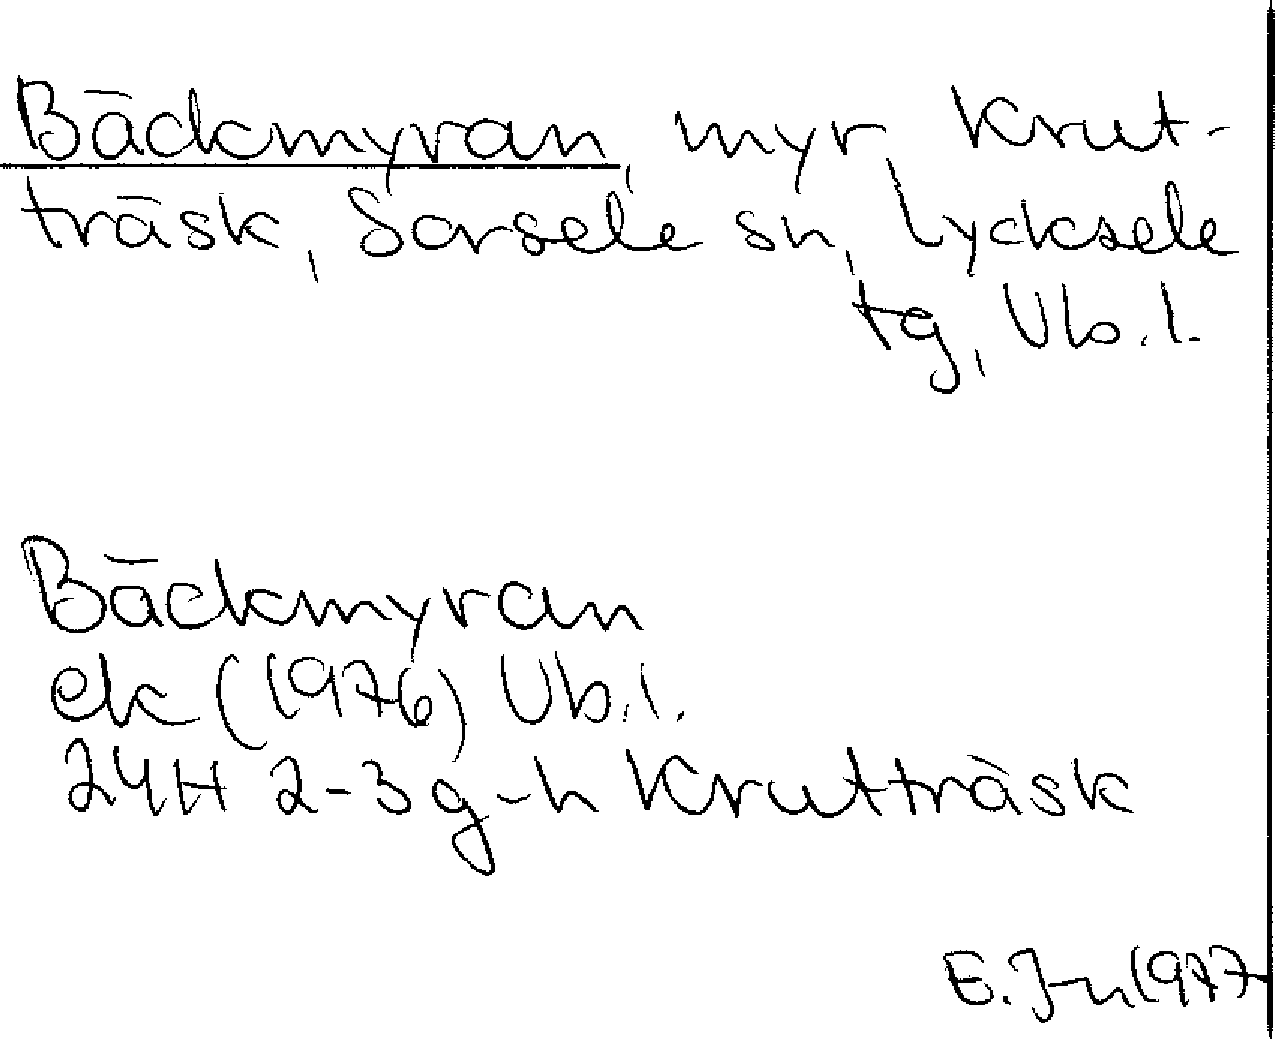 Bäckmyran, myr, Krut-
träsk, Sorsele sn, Lycksele
tg, Vb.l.
Bäckmyran
ek (1976) Vb.l.
24H 2-3 g-h Krutträsk
E. J-n 1977